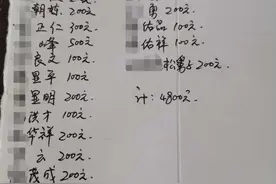 朝栋 200元
正仁 300元
峰 500元
良文 100元
显平 100元
显明 200元
洪才 100元
华祥 200元
云 200元
茂成 200元
勇 200元
佑品 100元
佑祥 100元
200元
计：4800元